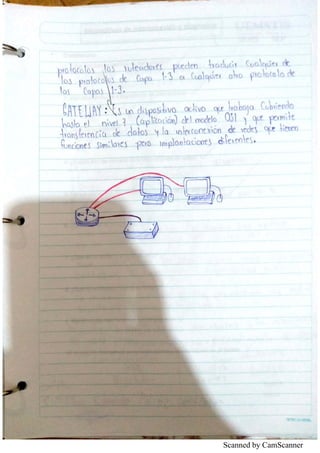 protocolos, los ruteadores pueden traducir cualquier de
los protocolos de Capa 1-3 a cualquier otro protocolo de
las Capas 1-3.
GATEWAY: Es un dispositivo activo que trabaja cubriendo
hasta el nivel 7 (aplicación) del modelo OSI y que permite
transferencia de datos y la interconexión de redes que tienen
funciones similares pero implantaciones diferentes.
Scanned by CamScanner